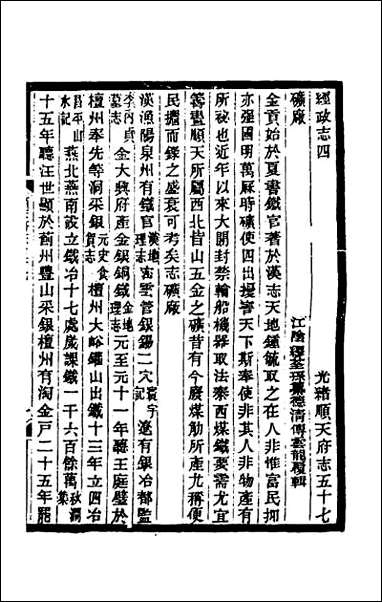 經政志四　光緒順天府志五十七
礦廠　江陰繆荃孫纂德清傅雲龍覆輯
金貢始於夏書鐵官著於漢志天地鍾毓取之在人非惟富民抑
亦强國明萬厤時礦使四出擾害天下斯奉使非其人非物產有
所祕也近年以來大開封禁輪船機器取法泰西煤鐵要需尤宜
籌畫順天所屬西北皆山五金之礦昔有今廢煤觔所產尤稱便
民撫而錄之盛衰可考矣志礦廠
漢漁陽泉州有鐵官漢地理志密雲管銀錫二穴寰宇記遼有銀冶都監
李內貞墓志金大興府產金銀銅鐵金地理志元至元十一年聽王庭璧於
檀州奉先等洞采銀元史食貨志檀州大峪錐山出鐵十三年立四冶
昌平山水記燕北燕南設立鐵冶十七處歲課鐵一千六百餘萬秋澗集
十五年聽汪世顯於薊州豐山采銀檀州有淘金戶二十五年罷